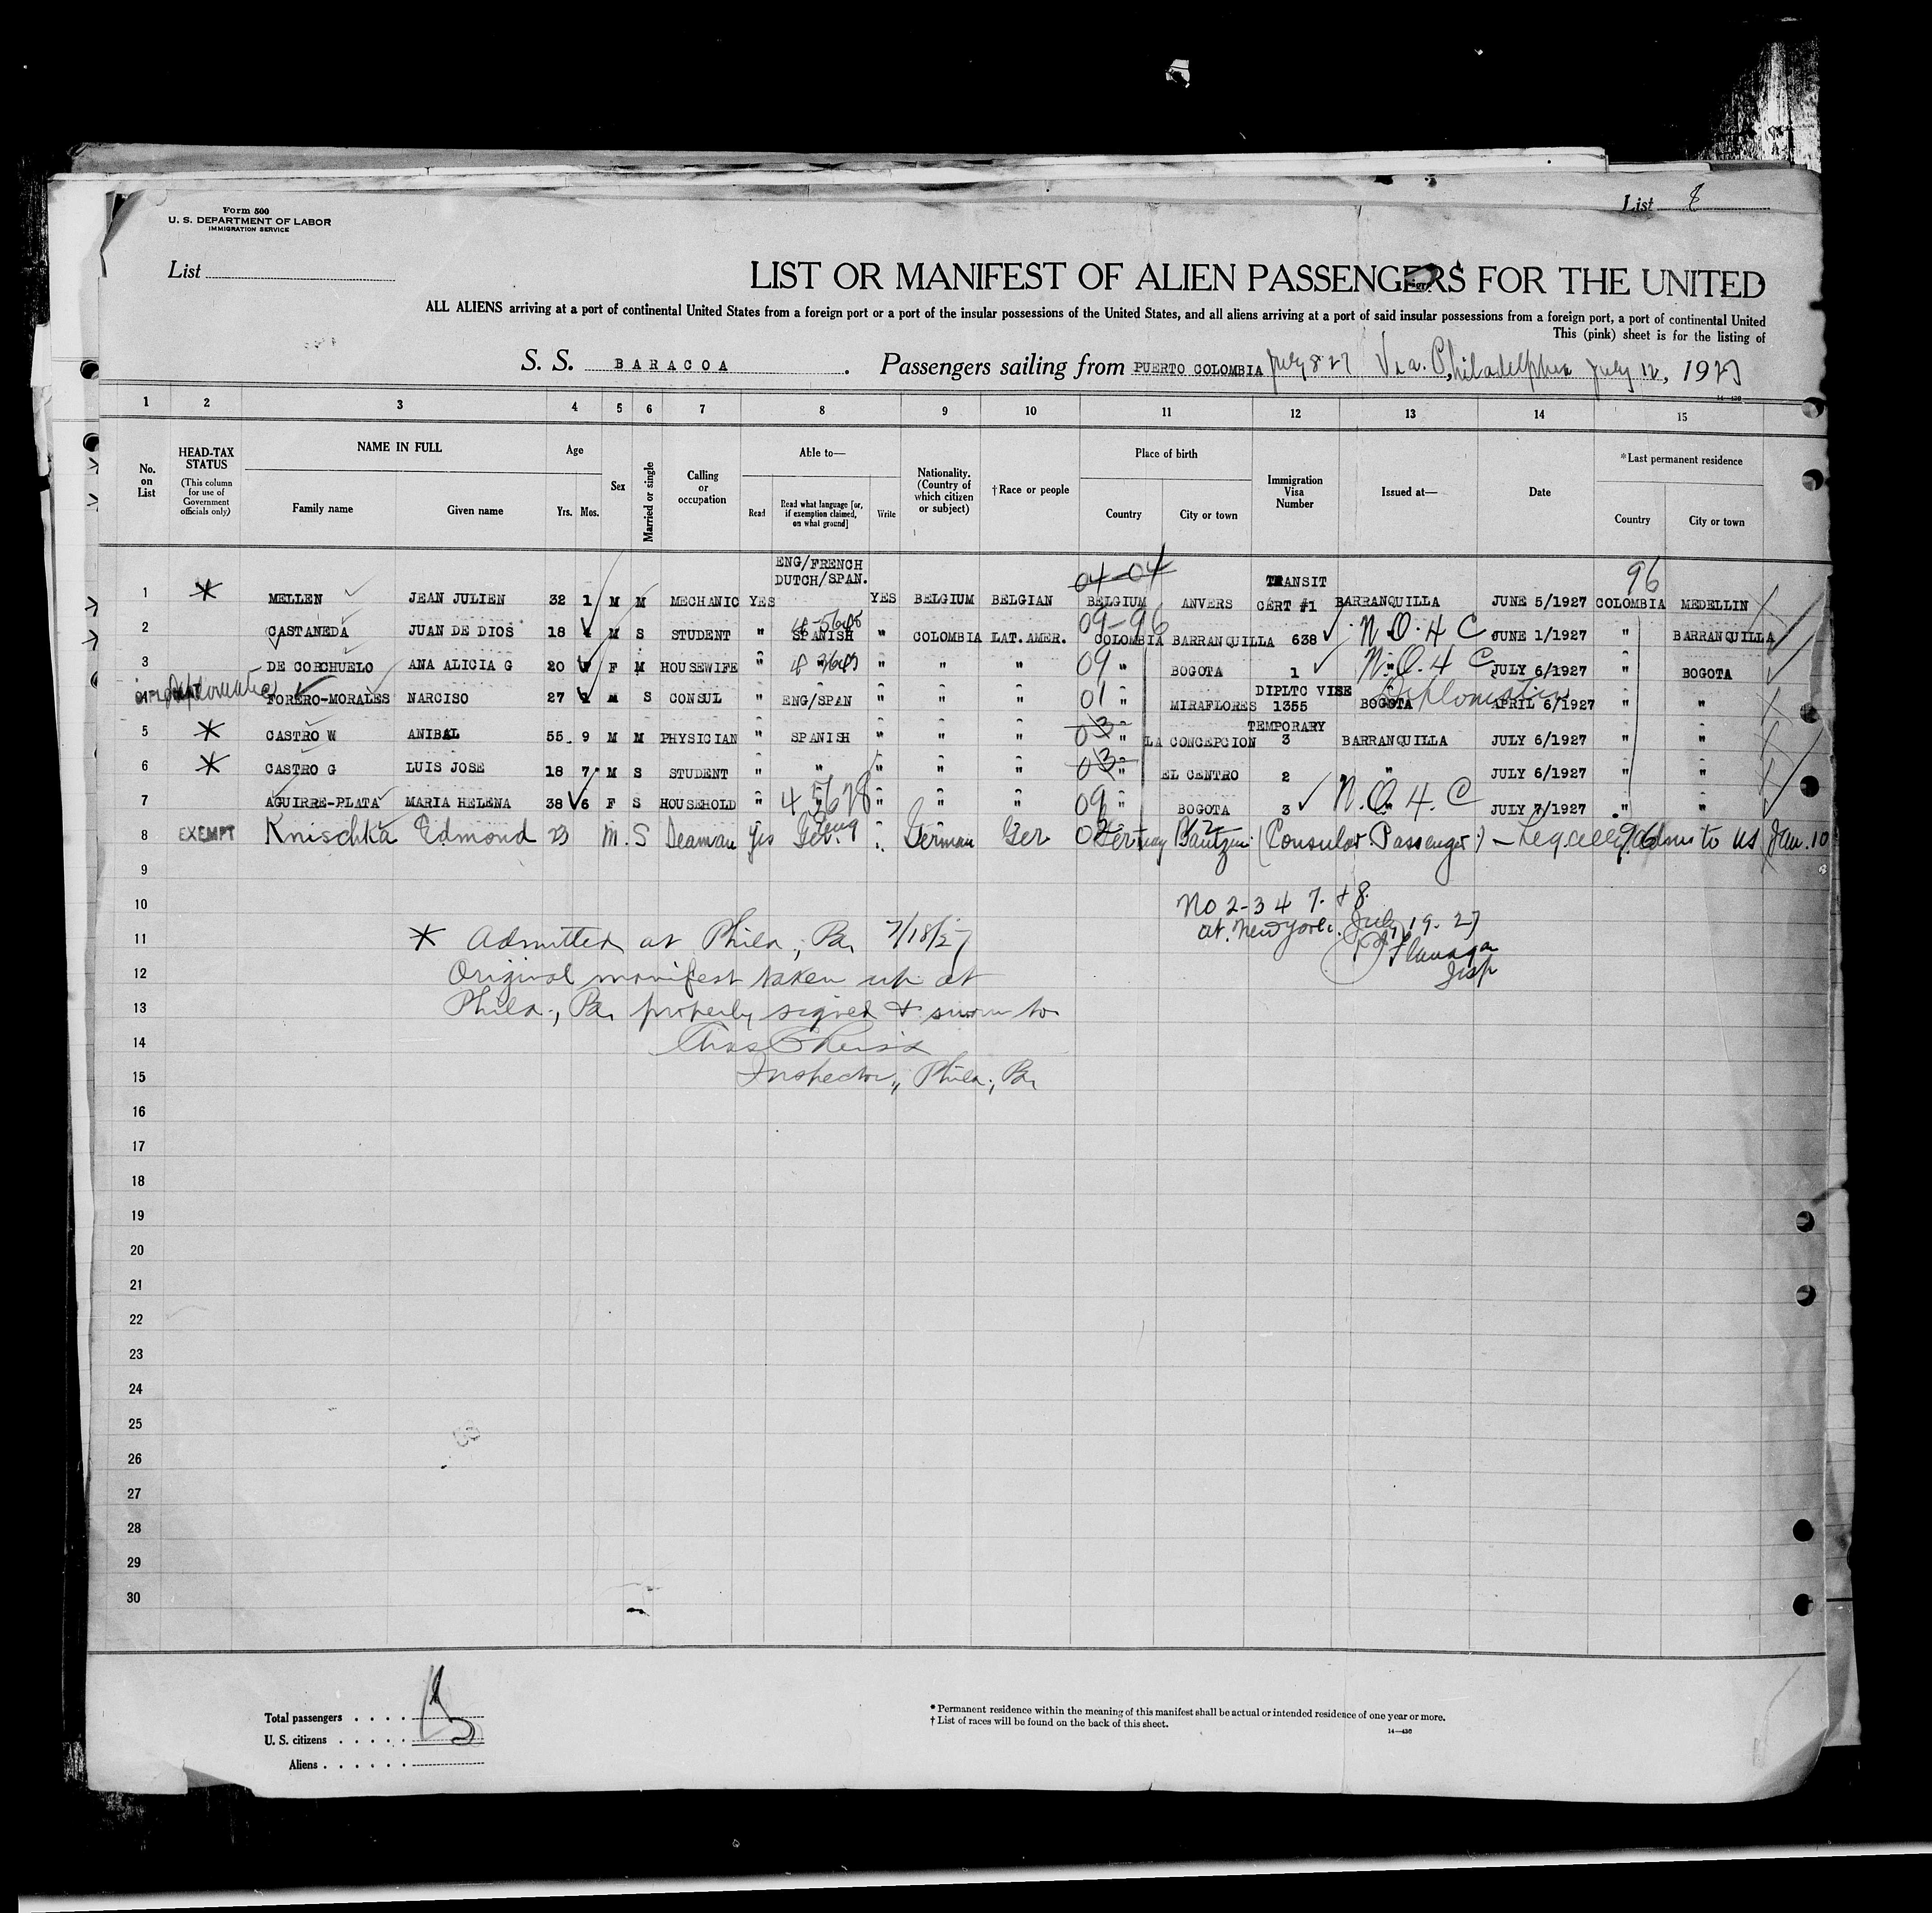 Form 500
U. S. DEPARTMENT OF LABOR
IMMIGRATION SERVICE
List 8
List
LIST OR MANIFEST OF ALIEN PASSENGERS FOR THE UNITED
ALL ALIENS arriving at a port of continental United States from a foreign port or a port of the insular possessions of the United States, and all aliens arriving at a port of said insular possessions from a foreign port, a port of continental United
This (pink) sheet is for the listing of
S. S. BARACOA. Passengers sailing from PUERTO COLOMBIA July 8 27 Via. Philadelphia July 12, 1927
14—430
1 2 3 4 5 6 7 8 9 10 11 12 13 14 15
No. on List HEAD-TAX STATUS (This column for use of Government officials only) NAME IN FULL Family name Given name Age Yrs. Mos. Sex Married or single Calling or occupation Able to— Read Read what language [or, if exemption claimed, on what ground] Write Nationality. (Country of which citizen or subject) †Race or people Place of birth Country City or town Immigration Visa Number Issued at— Date *Last permanent residence Country City or town
ENG/FRENCH 04-04 TRANSIT 96
DUTCH/SPAN.
1 * MELLEN JEAN JULIEN 32 1 M M MECHANIC YES YES BELGIUM BELGIAN BELGIUM ANVERS CERT #1 BARRANQUILLA JUNE 5/1927 COLOMBIA MEDELLIN
2 CASTANEDA JUAN DE DIOS 18 M S STUDENT " SPANISH " COLOMBIA LAT. AMER. 09-96 COLOMBIA BARRANQUILLA 638 N.O.4 C JUNE 1/1927 " BARRANQUILLA
3 DE CORCHUELO ANA ALICIA G 20 F M HOUSEWIFE " " " " " 09 " BOGOTA 1 N.O.4 C " JULY 6/1927 " BOGOTA
4 Diplomatic FORERO-MORALES NARCISO 27 M S CONSUL " ENG/SPAN " " " 01 " MIRAFLORES DIPLTC VISE 1355 BOGOTA Diplomatic APRIL 6/1927 " "
5 * CASTRO W ANIBAL 55 9 M M PHYSICIAN " SPANISH " " " 03 " LA CONCEPCION TEMPORARY 3 BARRANQUILLA JULY 6/1927 " "
6 * CASTRO G LUIS JOSE 18 7 M S STUDENT " " " " " 03 " EL CENTRO 2 " JULY 6/1927 " "
7 AGUIRRE-PLATA MARIA HELENA 38 6 F S HOUSEHOLD " " " " " 09 " BOGOTA 3 N.O.4.C " JULY 7/1927 " "
8 EXEMPT Knischka Edmond 23 M. S Seaman yes Ger. Eng " German Ger Germany Bautzen (Consular Passenger) — Legally adms to US Jan. 10
9
10 No 2-3 4 7. + 8.
11 * Admitted at Phila., Pa. 7/18/27 at New York. July 19. 27
Flanagan
12 Original manifest taken up at Insp
13 Phila., Pa. properly signed & sworn to
14
15 Inspector, Phila., Pa.
16
17
18
19
20
21
22
23
24
25
26
27
28
29
30
Total passengers . . . .
U. S. citizens . . . . .
Aliens . . . . . .
* Permanent residence within the meaning of this manifest shall be actual or intended residence of one year or more.
† List of races will be found on the back of this sheet.
14—430